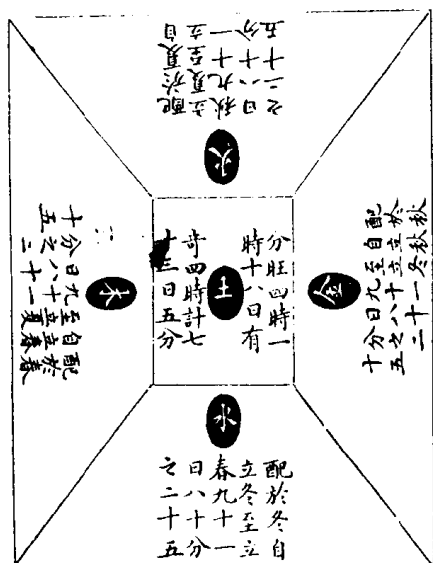 火
配於夏自
立夏至立
秋九十一
日八十分
之二十五
木
配於春
自立春
至立夏
九十一
日八十
分之二
十五
土
分旺四時一
時十八日有
奇四時計七
十三日五分
金
配於秋
自立秋
至立冬
九十一
日八十
分之二
十五
水
配於冬自
立冬至立
春九十一
日八十分
之二十五